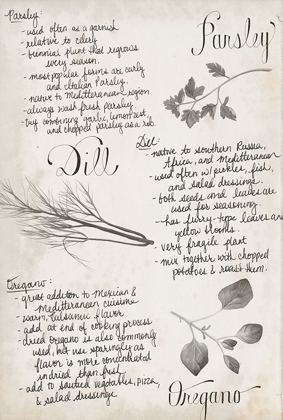 Parsley
- used often as a garnish
- relative to celery
- biennial plant that regrows
every season.
- most popular forms are curly
and Italian Parsley.
- native to Mediterranean region
- always wash fresh parsley.
- try combining garlic, lemon zest,
and chopped parsley as a rub.
Parsley
Dill
Dill:
- native to southern Russia,
Africa, and Mediterranean
- used often w/ pickles, fish,
and salad dressings.
- both seeds and leaves are
used for seasoning
- has furry-type leaves and
yellow blooms.
- very fragile plant
- mix together with chopped
potatoes & roast them.
Oregano:
- great addition to Mexican &
Mediterranean cuisine
- warm, balsamic flavor
- add at end of cooking process
- dried oregano is also commonly
used, but use sparingly as
flavor is more concentrated
in dried than fresh
- add to sautéed vegetables, pizza,
& salad dressings
Oregano